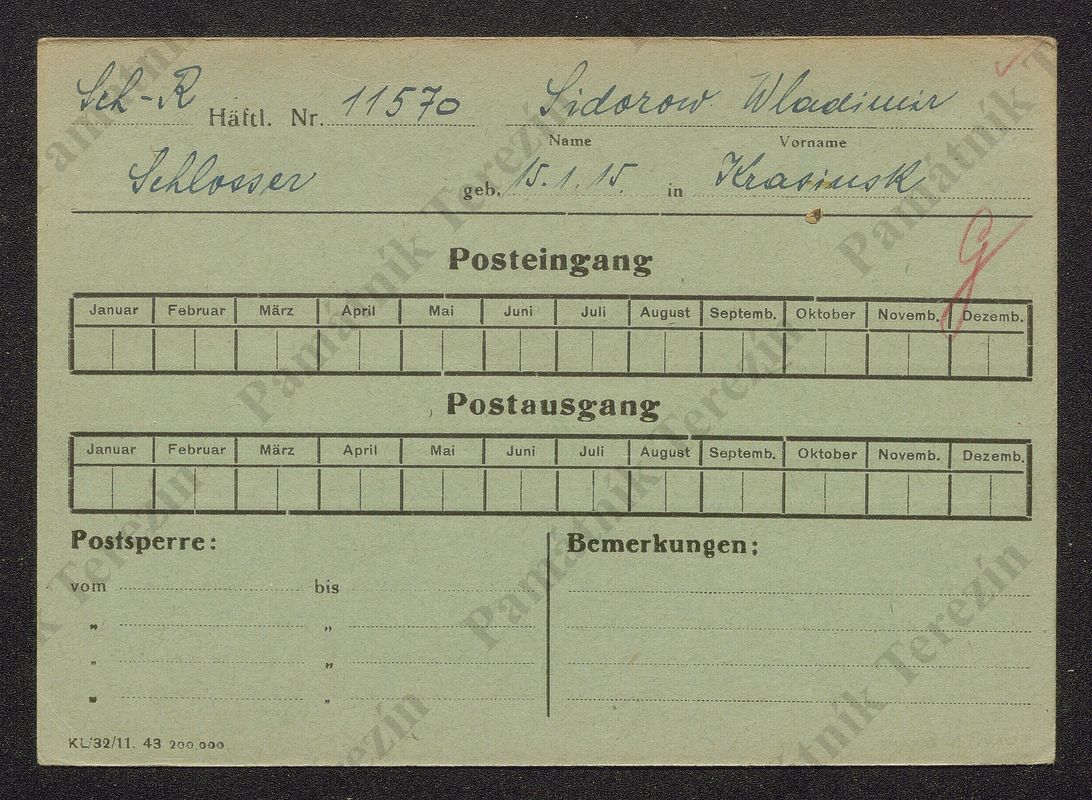 Sch-R Häftl. Nr. 11570 Sidorow Wladimir
Name Vorname
Schlosser geb. 15.1.15. in Krasinsk
G
Posteingang
Januar Februar März April Mai Juni Juli August Septemb. Oktober Novemb. Dezemb.
Postausgang
Januar Februar März April Mai Juni Juli August Septemb. Oktober Novemb. Dezemb.
Postsperre: Bemerkungen:
vom bis
„ „
„ „
„ „
KL/32/11. 43 200,000
Památník Terezín